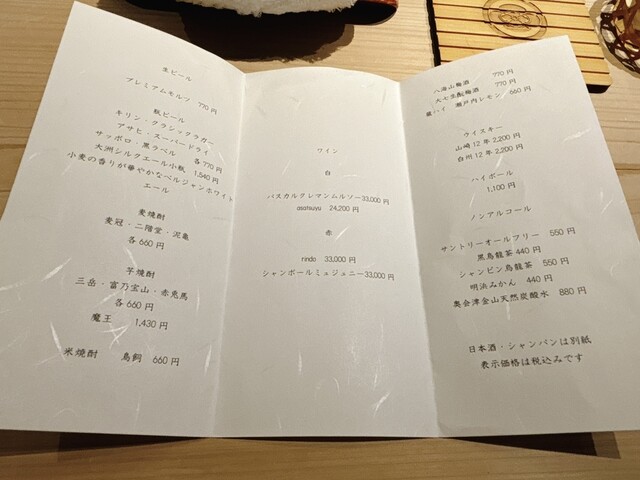 生ビール
プレミアムモルツ 770円
瓶ビール
キリン・クラシックラガー
アサヒ・スーパードライ
サッポロ・黒ラベル 各770円
大洲シルクエール小瓶 1,540円
小麦の香りが華やかなベルジャンホワイト
エール
麦焼酎
麦冠・二階堂・泥亀
各660円
芋焼酎
三岳・富乃宝山・赤兎馬
各660円
魔王 1,430円
米焼酎 鳥飼 660円
ワイン
白
パスカルクレマンムルソー33,000円
asatsuyu 24,200円
赤
rindo 33,000円
シャンボールミュジュニー33,000円
八海山梅酒 770円
大七生酛梅酒 770円
蔵ハイ 瀬戸内レモン 660円
ウイスキー
山崎12年2,200円
白州12年2,200円
ハイボール
1,100円
ノンアルコール
サントリーオールフリー 550円
黒烏龍茶440円
ジャンピン烏龍茶 550円
明浜みかん 440円
奥会津金山天然炭酸水 880円
日本酒・シャンパンは別紙
表示価格は税込みです